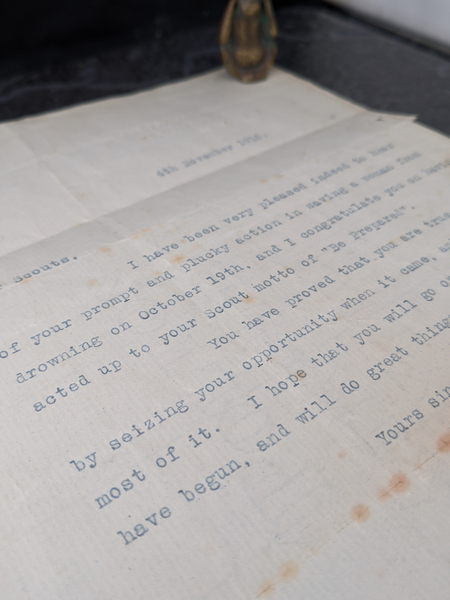 4th November
Scouts.
I have been very pleased indeed to hear
of your prompt and plucky action in saving a woman from
drowning on October 19th, and I congratulate you on
acted up to your Scout motto of "Be Prepared".
You have proved that you are true
by seizing your opportunity when it came,
most of it. I hope that you will go on
have begun, and will do great things
Yours